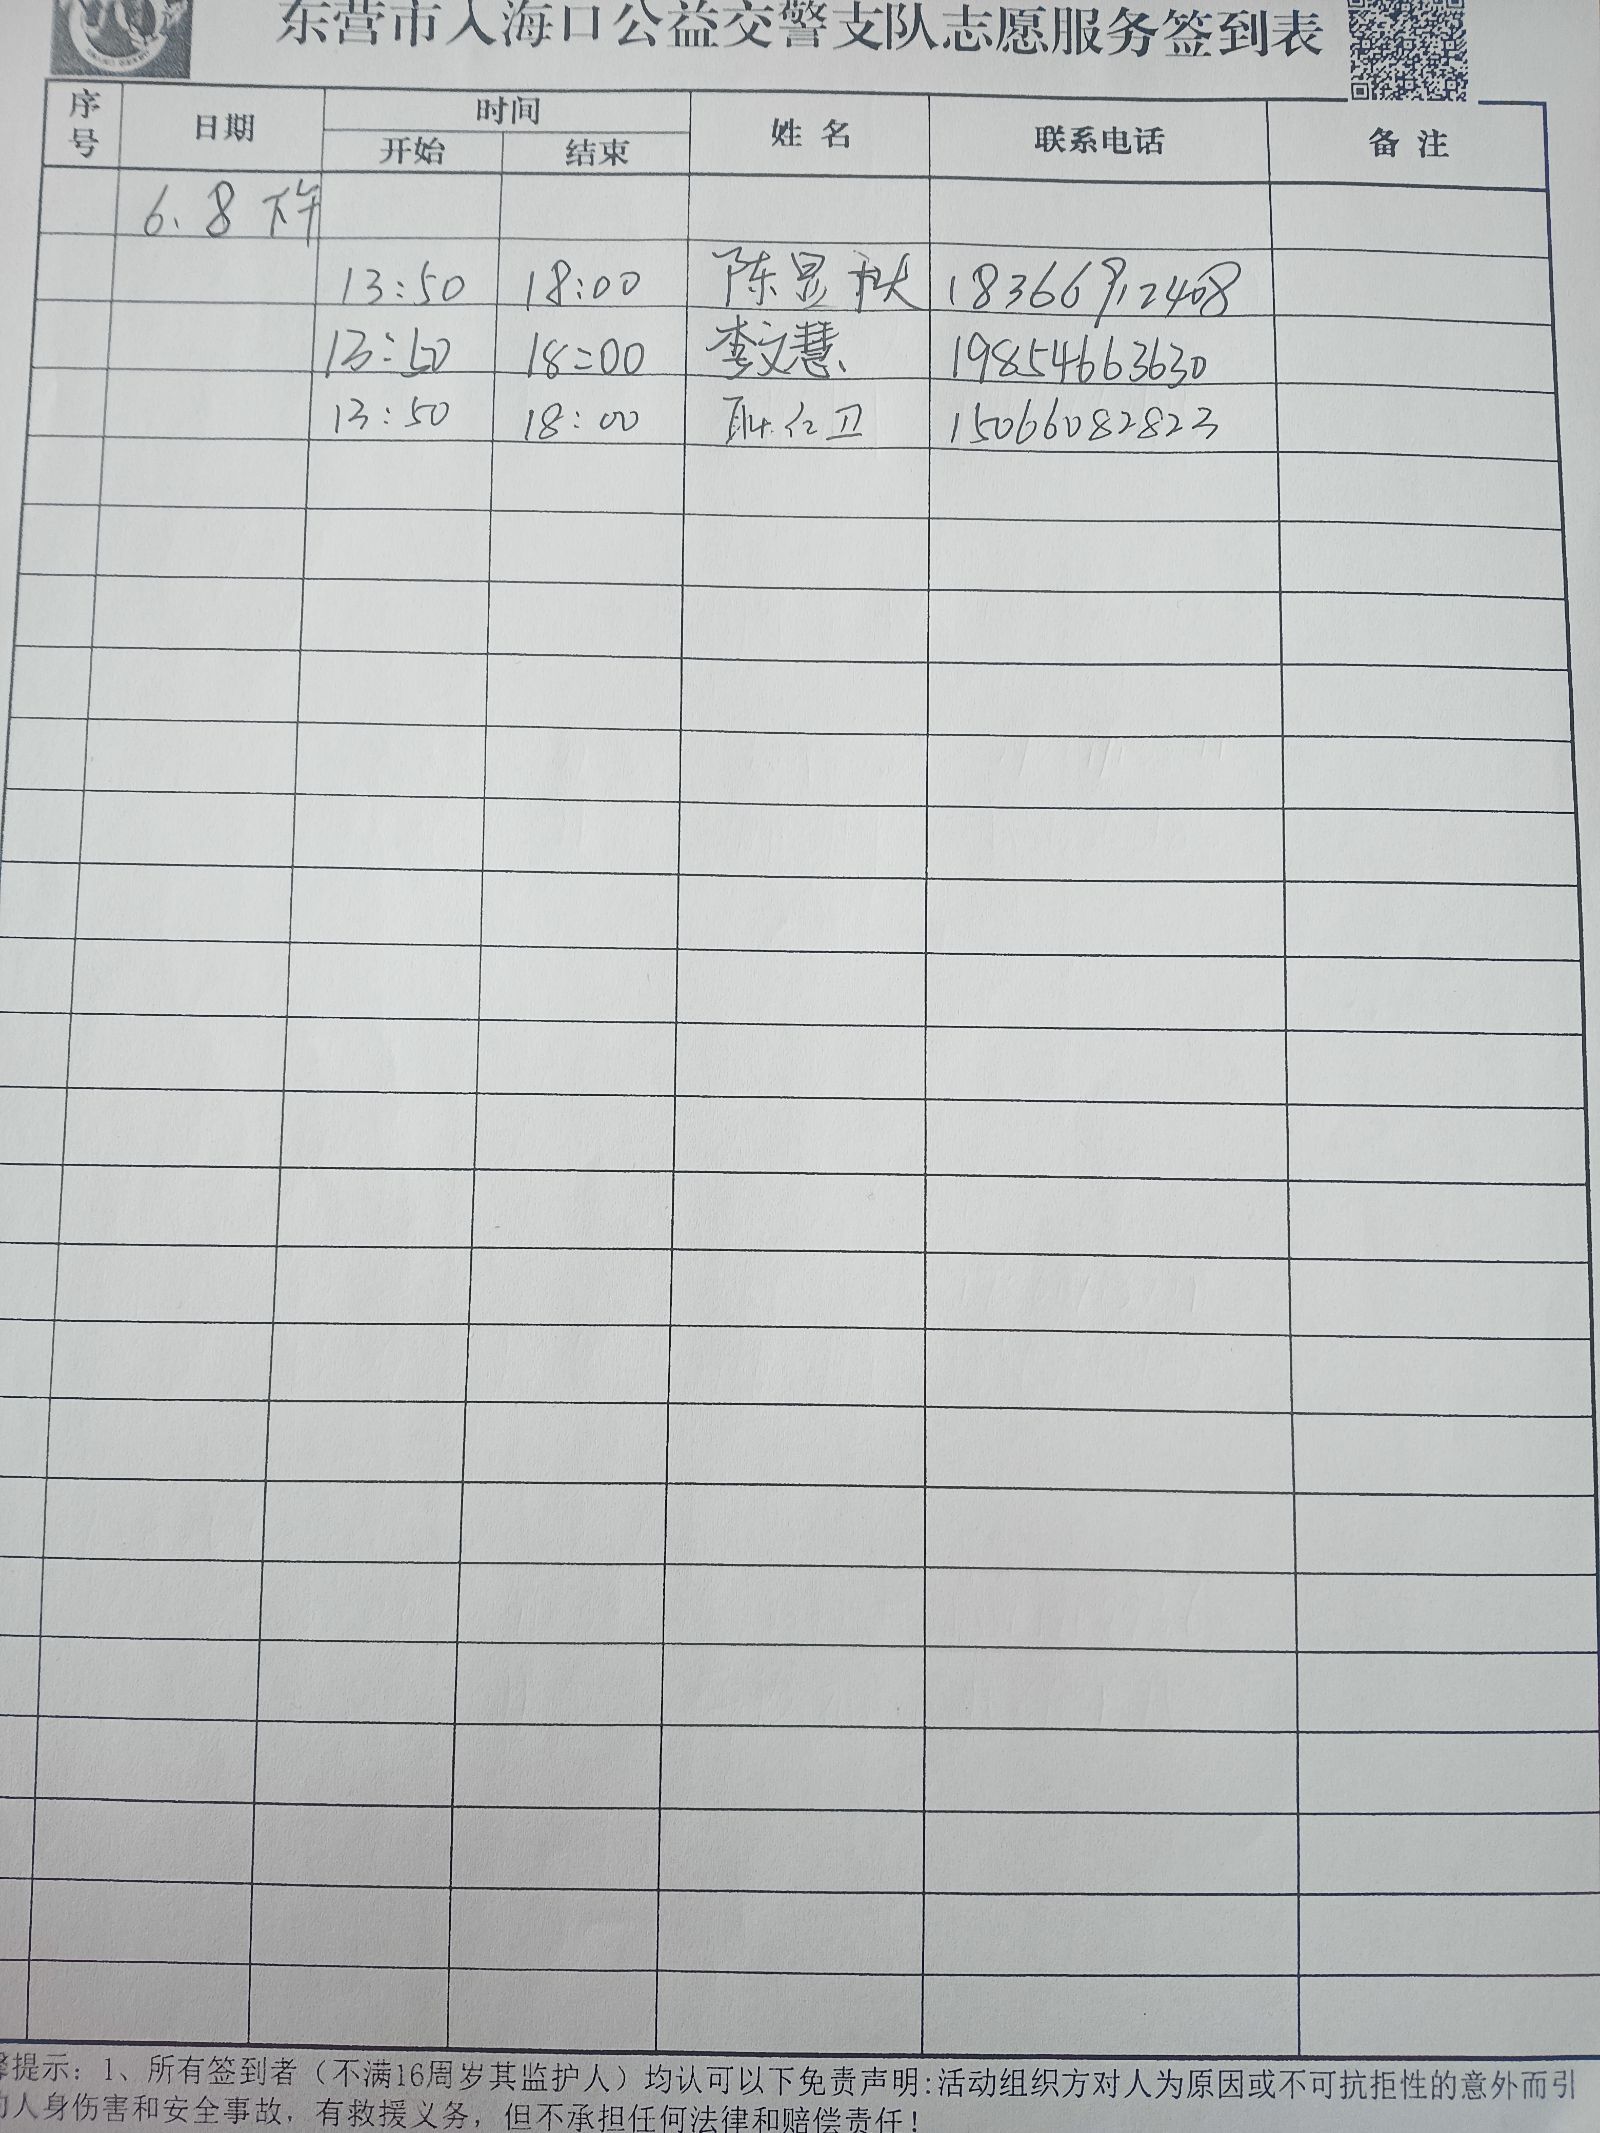 东营市入海口公益交警支队志愿服务签到表
序号 日期 时间 姓 名 联系电话 备 注
开始 结束
6.8 下午
13:50 18:00 陈显秋 18366912408
13:50 18:00 李文慧 19854663630
13:50 18:00 耿红卫 15066082823
馨提示：1、所有签到者（不满16周岁其监护人）均认可以下免责声明:活动组织方对人为原因或不可抗拒性的意外而引
的人身伤害和安全事故，有救援义务，但不承担任何法律和赔偿责任！